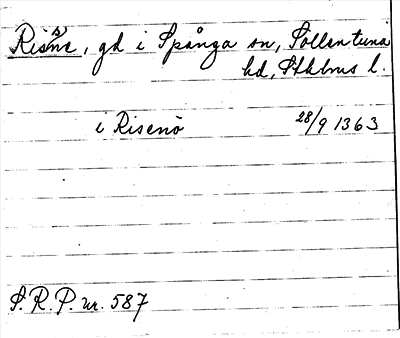 Risne, gd i Spånga sn, Sollentuna
hd, Sthlms l.
i Risenö 28/9 1363
S.R.P. nr. 587